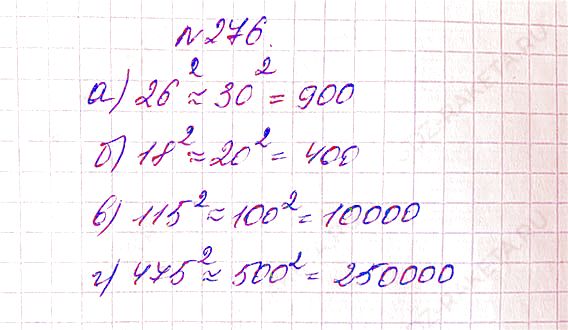 №276.
а) 26² ≈ 30² = 900
б) 18² ≈ 20² = 400
в) 115² ≈ 100² = 10000
г) 475² ≈ 500² = 250000